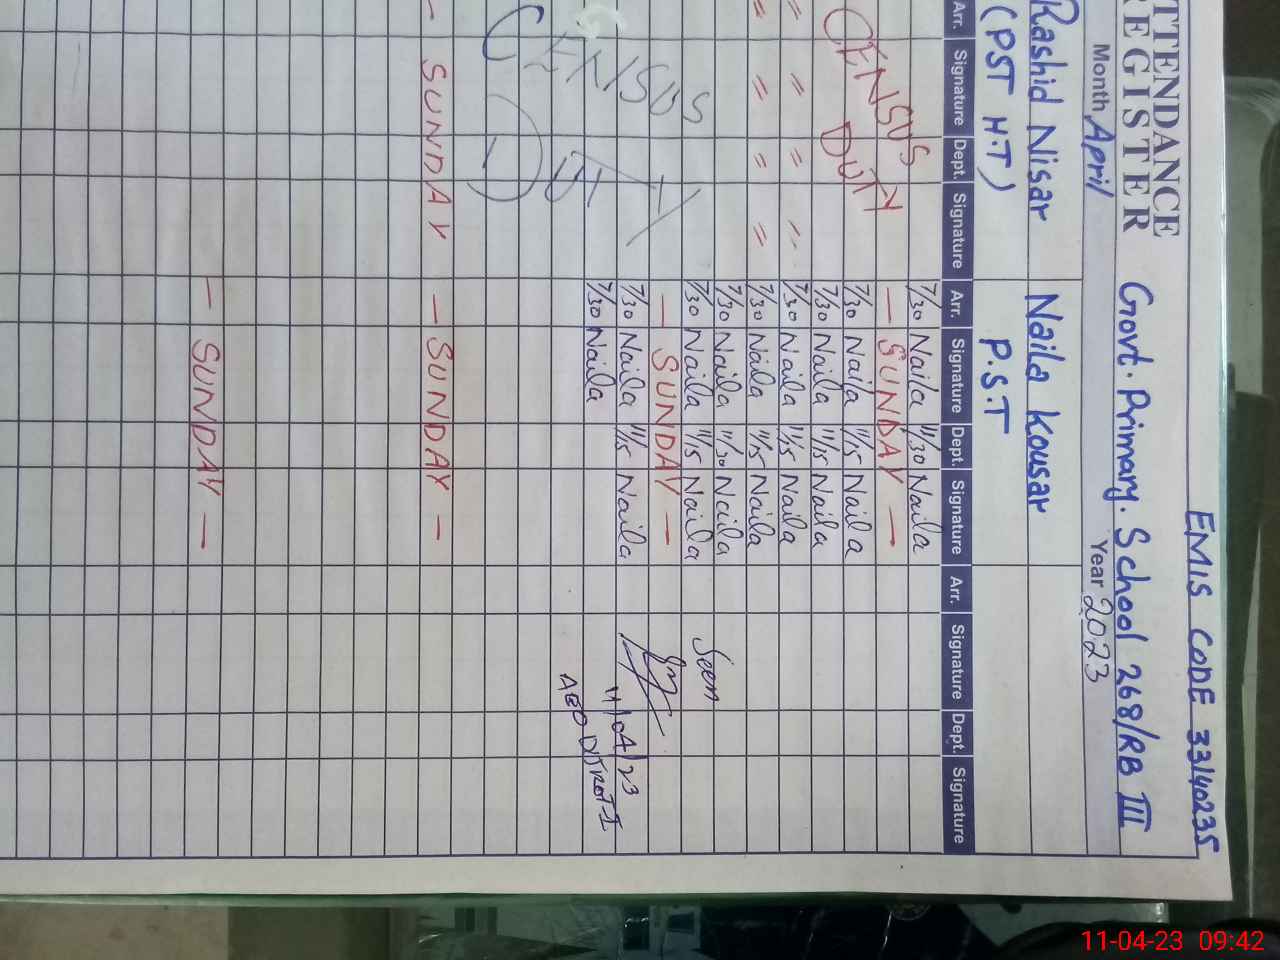 EMIS CODE 33140235
TTENDANCE
REGISTER
Govt. Primary. School 268/RB III
Month April
Year 2023
Rashid Nisar
(PST H.T)
Naila Kousar
P.S.T
Arr. Signature Dept. Signature Arr. Signature Dept. Signature Arr. Signature Dept. Signature
7/30 Naila 11/30 Naila
CENSUS DUTY
— SUNDAY —
7/30 Naila 11/15 Naila
7/30 Naila 11/15 Naila
" " " " 7/30 Naila 11/15 Naila
" " " " 7/30 Naila 11/15 Naila
7/30 Naila 11/30 Naila
7/30 Naila 11/15 Naila
Seen
CENSUS
DUTY
— SUNDAY —
7/30 Naila 11/15 Naila
11/04/23
7/30 Naila
AEO
— SUNDAY — SUNDAY —
— SUNDAY —
11-04-23 09:42